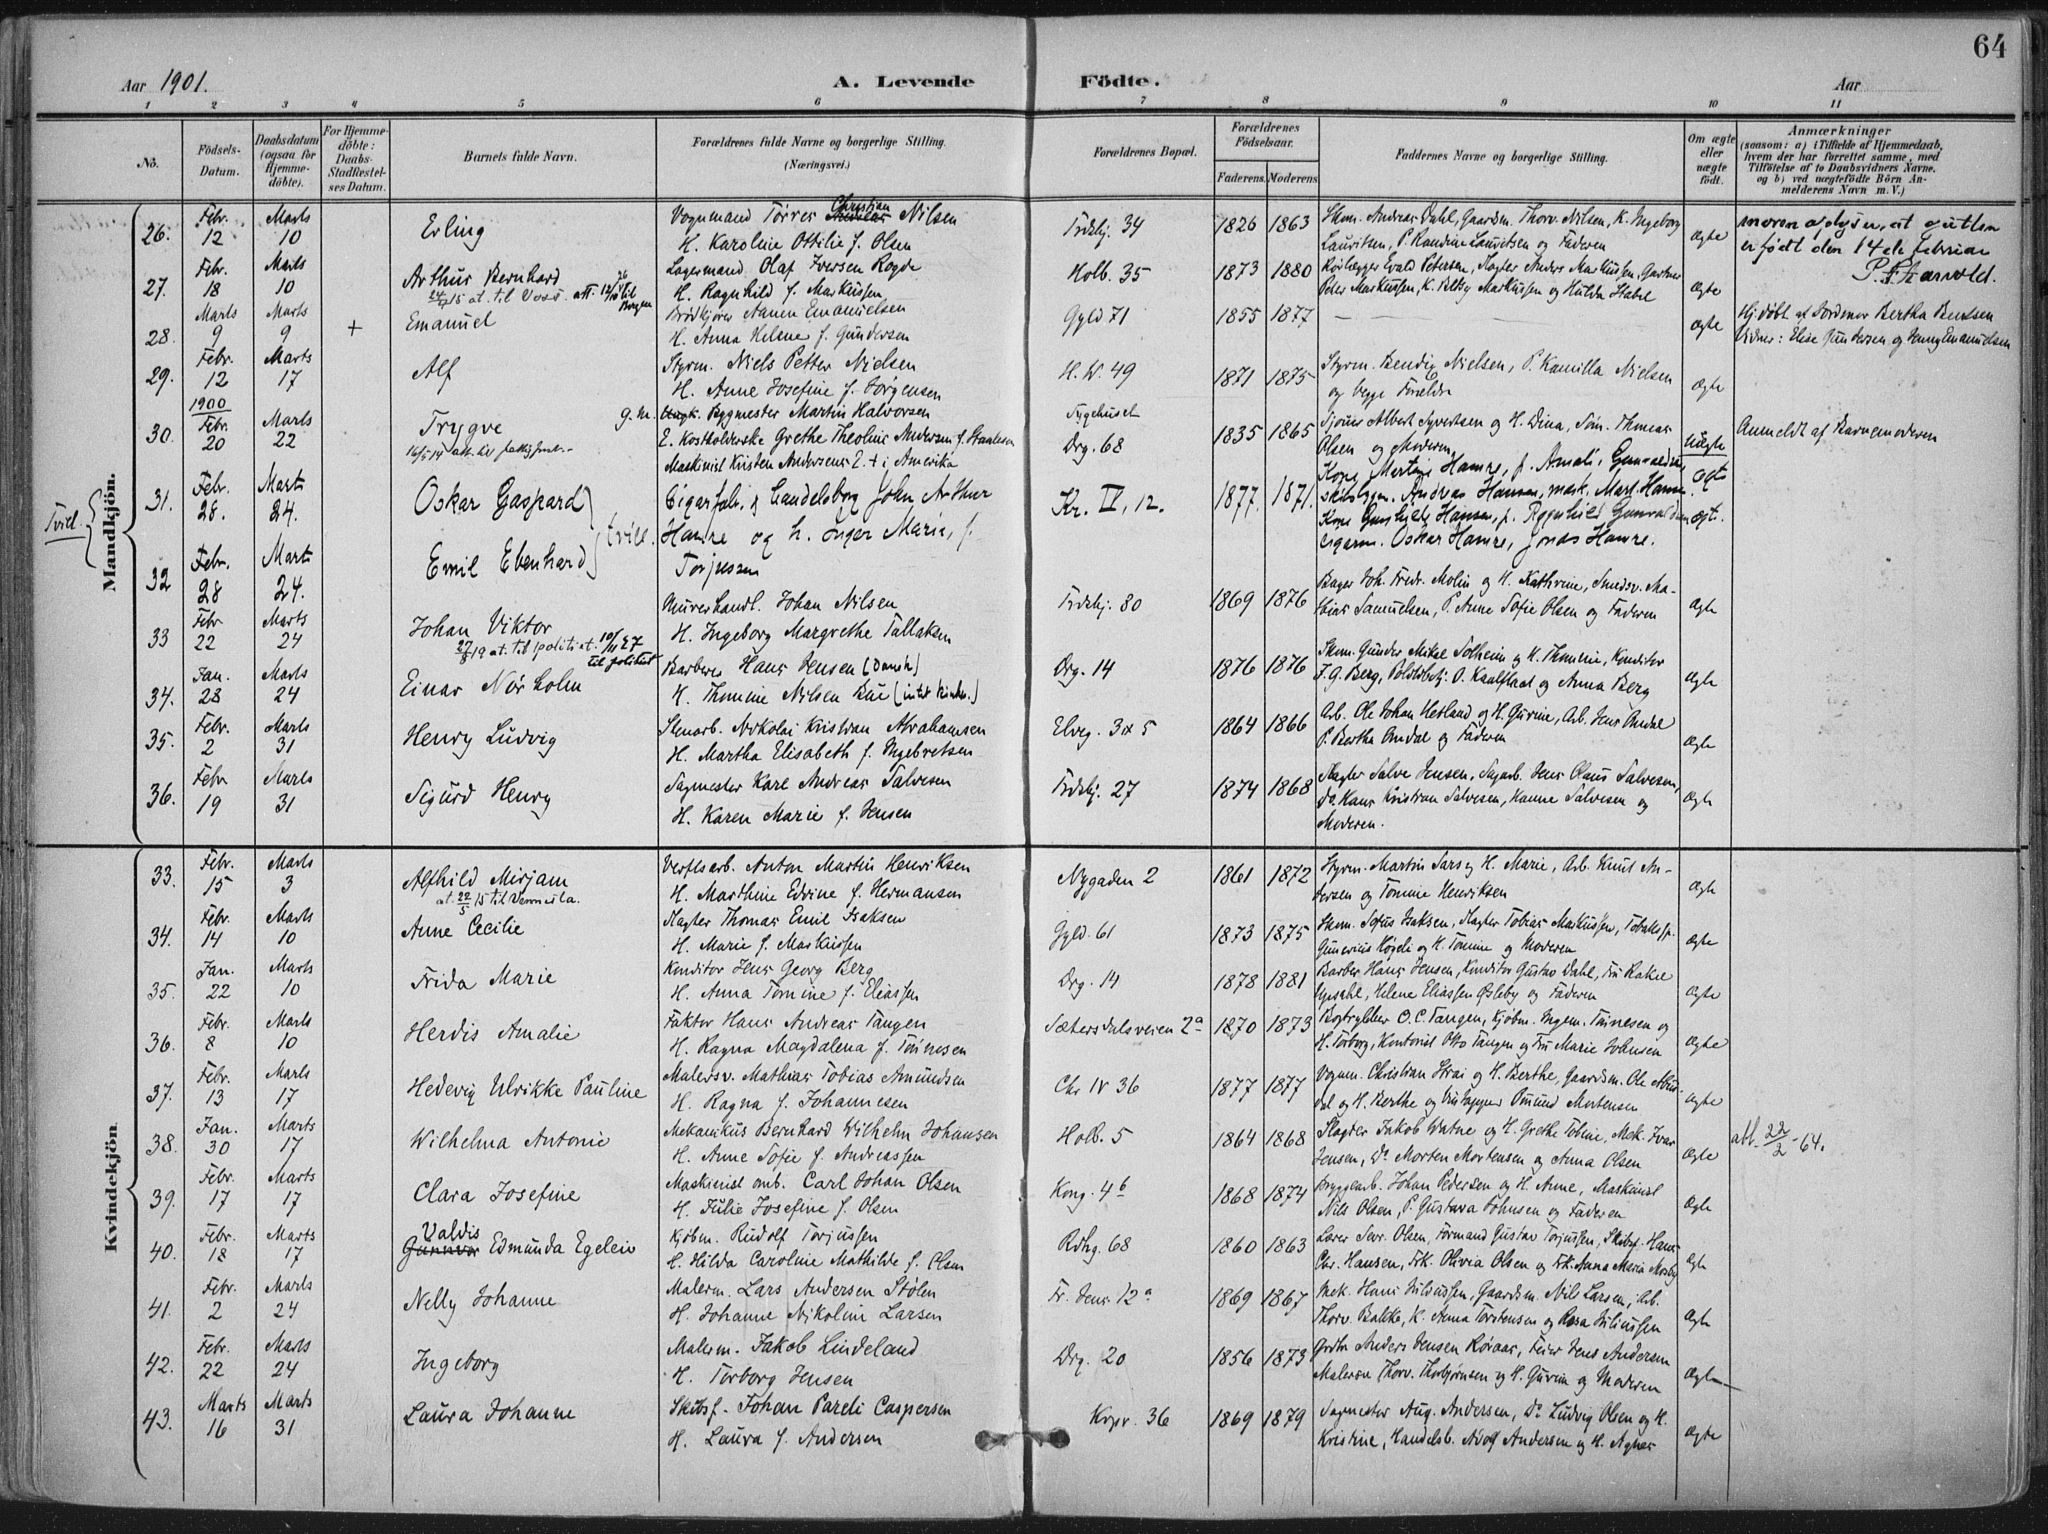 64
Aar 1901. A. Levende Födte. Aar
1 2 3 4 5 6 7 8 9 10 11
No. Födsels-Datum. Daabsdatum (ogsaa for Hjemme-döbte). For Hjemme-döbte: Daabs-Stadfæstel-ses Datum. Barnets fulde Navn. Forældrenes fulde Navne og borgerlige Stilling. (Næringsvei.) Forældrenes Bopæl. Forældrenes Födselsaar. Faderens. Moderens Faddernes Navne og borgerlige Stilling. Om ægte eller uægte födt. Anmærkninger (saasom: a) i Tilfælde af Hjemmedaab, hvem der har forrettet samme, med Tilföielse af to Daabsvidners Navne. og b) ved uægtefödte Börn An-melderens Navn m. V.)
Mandkjön.
26. Febr. 12 Marts 10 Erling Vognmand Törres Christian Nilsen Trdskj. 34 1826 1863 Skom. Andreas Dahl, Gaardm. Thorv. Nilsen, K. Ingeborg moren oplyser, at gutten
H. Karoline Ottilie f. Olsen Lauritsen, P. Randine Lauritsen og Faderen ægte er født den 14de februar
27. Febr. 18 Marts 10 Arthur Bernhard Lagermand Olaf Iversen Rogde Holb. 35 1873 1880 Rörlægger Evald Petersen, Slagter Anders Markussen, Gartner P. Tharvold.
24/7 15 at. til Voss. att. 12/10 26 til Bergen H. Ragnhild f. Markussen Peder Markussen, K. Betsy Markussen og Hulda Stabel ægte
28. Marts 9 Marts 9 + Emanuel Brödkjörer Aanen Emanuelsen Gyld 71 1855 1877 — — — Hj. döbt af Jordemor Bertha Bentsen
H. Anna Helene f. Gundersen ægte Vidner: Elise Gundersen og Jenny Emanuelsen
29. Febr. 12 Marts 17 Alf Styrm. Niels Petter Nielsen H. W. 49 1871 1875 Styrm. Bendig Nielsen, P. Kamilla Nielsen
H. Anne Josefine f. Jörgensen og begge Forældre ægte
30. 1900 Febr. 20 Marts 22 Trygve g. m. Ungk. Bygmester Martin Halvorsen Sygehuset 1835 1865 Sjömd Albert Syvertsen og H. Dina, Töm. Thomas Anmeldt af Barnemoderen
16/5 14 att. E. Kostholderske Grethe Theoline Andersen f. Staalesen Drg. 68 Olsen og Moderen uægte
Maskinist Kristen Andersens E. + i Amerika
Tvill.
31. Febr. 28. Marts 24. Oskar Gaspard Cigarfab. & Candelsborg John Arthur Kr. IV, 12. 1877. 1871. Kone Martine Hamre, p. Amali Gunvaldsen ægte
tvill. Hamre og h. Inger Marie, f. skibstygm. Andreas Hansen, mask. Mart. Hamre.
32 Febr. 28 Marts 24. Emil Ebenhard Torjussen Kone Gunhild Hansen, p. Ragnhild Gunvaldsen ægte.
cigarm. Oskar Hamre, Jonas Hamre.
33 Febr 22 Marts 24 Johan Viktor Murerhandl. Johan Nilsen Trdskj. 80 1869 1876 Bager Joh. Fredr. Molin og H. Kathrine, Smedsv. Ma-
27/8 19 at. til politi at. 10/11 27 til politiet H. Ingeborg Margrethe Tallaksen thias Samuelsen, P. Anne Sofie Olsen og Faderen ægte
34. Jan. 28 Marts 24 Einar Nörholm Barber Hans Jensen (Dansk) Drg. 14 1876 1876 Skom. Gunder Mikal Solheim og H. Thomine, Konditor
H. Thomine Nilsen Bue (intet Kirkes.) J. G. Berg, Politibetj. O. Kaalstad og Anna Berg ægte
35. Febr. 2 Marts 31 Henry Ludvig Stenarb. Nikolai Kristian Abrahamsen Elveg. 3 x 5 1864 1866 Arb. Ole Johan Hetland og H. Gurine, Arb. Jens Omdal
H. Martha Elisabeth f. Ingebretsen P. Bertha Omdal og Faderen ægte
36. Febr. 19 Marts 31 Sigurd Henry Sagmester Karl Andreas Salvesen Trdskj. 27 1874 1868 Slagter Salve Jensen, Sagarb. Jens Olaus Salvesen,
H. Karen Marie f. Jensen Do. Hans Kristian Salvesen, Hanne Salvesen og ægte
Moderen.
Kvindekjön
33. Febr. 15 Marts 3 Alfhild Mirjam Verftsarb. Anton Martin Henriksen Nygaden 2 1861 1872 Styrm. Martin Sars og H. Marie, Arb. Knut An-
at. 22/5 15 til Vennesla. H. Marthine Edvine f. Hermansen dersen og Tomine Henriksen ægte
34. Febr. 14 Marts 10 Anne Cecilie Slagter Thomas Emil Isaksen Gyld. 61 1873 1875 Skom. Sofus Isaksen, Slagter Tobias Markussen, Tobakssp.
H. Marie f. Markussen Gunerius Högeli og H. Tomine og Moderen ægte
35. Jan. 22 Marts 10 Frida Marie Konditor Jens Georg Berg Drg. 14 1878 1881 Barber Hans Jensen, Konditor Gustav Dahl, Fru Rakel
H. Anna Tomine f. Eliassen Upsahl, Helene Eliassen Osleby og Faderen ægte
36. Febr. 8 Marts 10 Herdis Amalie Faktor Hans Andreas Tangen Sætersdalsveien 2a 1870 1873 Bogtrykker O. C. Tangen, Kjöbm. Ingem. Tönnesen og
H. Ragna Magdalena f. Tönnesen H. Torborg, Kontorist Otto Tangen og Fru Marie Johnsen ægte
37. Febr. 13 Marts 17 Hedevig Ulrikke Pauline Malersv. Mathias Tobias Amundsen Chr IV 36 1877 1877 Vognm. Christian Strai og H. Berthe, Gaardsm. Ole
H. Ragna f. Johannesen og H. Berthe og Vintapper Omund Mortensen ægte
38. Jan. 30 Marts 17 Wilhelma Antonie Mekanikus Bernhard Wilhelm Johansen Holb. 5 1864 1868 Slagter Jakob Watne og H. Grethe Tobine, Mek. Ivar att. 22/2 - 64.
H. Anne Sofie f. Andreassen Jensen, Do. Morten Mortensen og Anna Olsen ægte
39. Febr. 17 Marts 17 Clara Josefine Maskinist omb. Carl Johan Olsen Kong. 4b 1868 1874 Bryggearb. Johan Pedersen og H. Anne, Maskinist
H. Julie Josefine f. Olsen Nils Olsen, P. Gustava Johnsen og Faderen ægte
40. Febr. 18 Marts 17 Valdis Gunnvor Edmunda Egelein Kjöbm. Rudolf Torjussen Rdhg. 68 1860 1863 Lærer Sevr. Olsen, Formand Gustav Torjussen, Skibsf. Hans
H. Hilda Caroline Mathilde f. Olsen Chr. Hansen, Frk. Olivia Olsen og Frk. Anna Maria Mosby ægte
41. Febr. 2 Marts 24 Nelly Johanne Malerm. Lars Andersen Stölen Fr. Jens. 12a 1869 1867 Mek. Hans Juliussen, Gaardsm. Nils Larsen, Arb.
H. Johanne Nikoline Larsen Thorv. Bakke, K. Anna Torstensen og Rosa Juliussen ægte
42. Febr. 22 Marts 24 Ingeborg Malerm. Jakob Lindeland Drg. 20 1856 1873 Anders Jensen Röraas, Feier Jens Andersen
H. Torborg Jensen Malersv Thorv. Thorbjörnsen og H. Gurine og Moderen ægte
43. Marts 16 Marts 31 Laura Johanne Skibsf. Johan Pareli Caspersen Kvpr. 36 1869 1879 Sagmester Aug. Andersen, Do. Ludvig Olsen og H.
H. Laura f. Andersen Kristine, Handelsb. Adolf Andersen og H. Agnes ægte